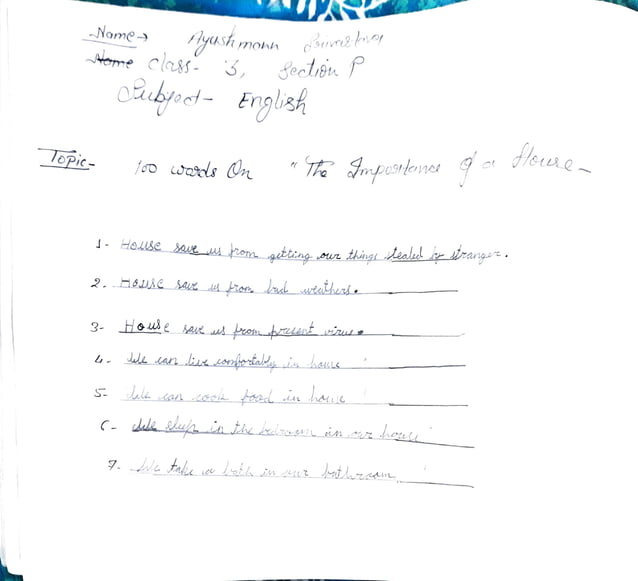 Name → Ayushmann
Name Class- 3, Section P
Subject- English
Topic- 100 words On "The Importance of a House-
1- House save us from getting our things stealed by stranger.
2. House save us from bad weathers.
3- House save us from present virus.
4. We can live comfortably in house
5- We can cook food in house
6- We sleep in the bedroom in our house
7. We take a bath in our bathroom